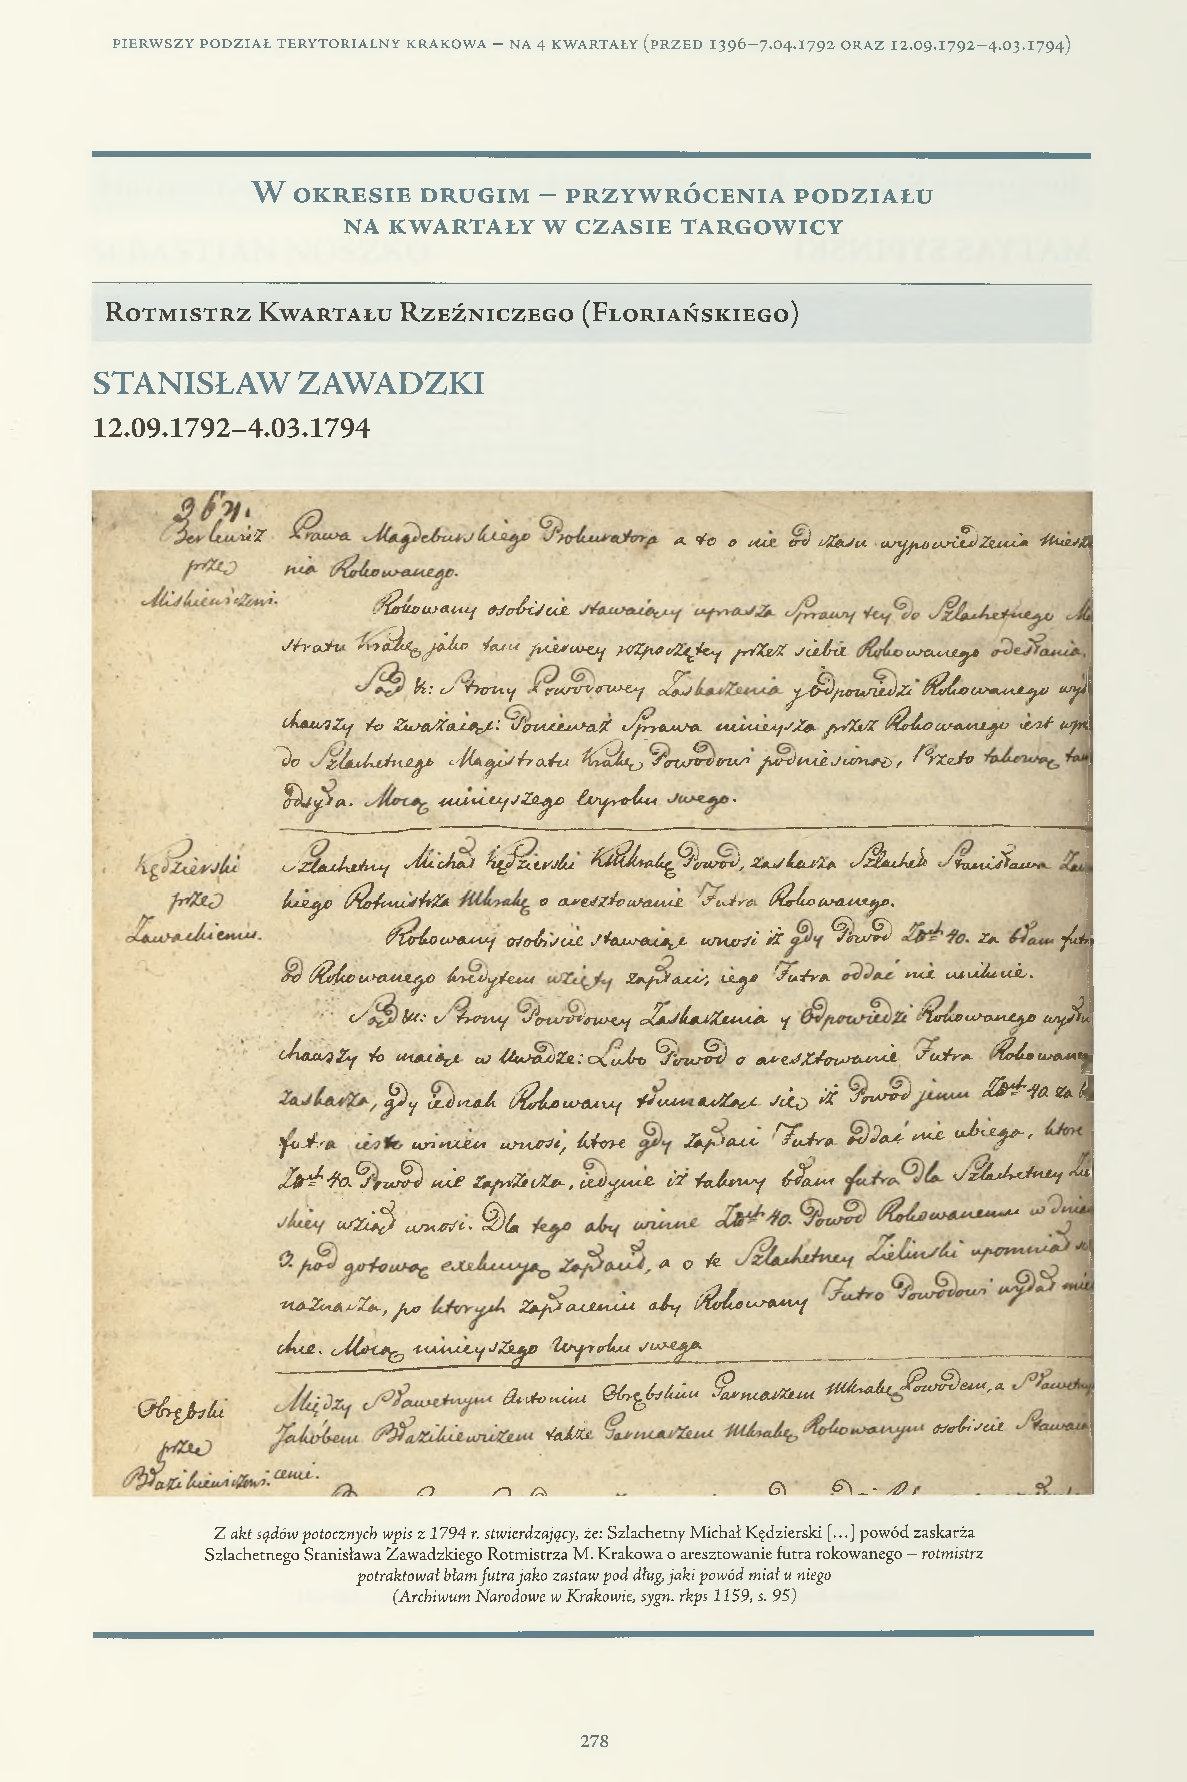 PIERWSZY PODZIAŁ TERYTORIALNY KRAKOWA – NA 4 KWARTAŁY (PRZED 1396–7.04.1792 ORAZ 12.09.1792–4.03.1794)
W OKRESIE DRUGIM – PRZYWRÓCENIA PODZIAŁU
NA KWARTAŁY W CZASIE TARGOWICY
ROTMISTRZ KWARTAŁU RZEŹNICZEGO (FLORIAŃSKIEGO)
STANISŁAW ZAWADZKI
12.09.1792–4.03.1794
Prawa Magdeburskiego Prokuratora a to o nie od czasu wypowiedzenia
przec
nia Rokowanego.
Rokowany osobiscie stawaiący uprasza Sprawy tey do Szlachetnego
stratu jako tam pierwey rozpoczętey przez siebie Rokowanego odesłania.
Sąd Strony Powodowey Zaskarzenia y Odpowiedzi Rokowanego
chawszy to zważaiąc: Ponieważ Sprawa ninieysza przez Rokowanego iest
do Szlachetnego Magistratu Powodowi podniesiona, Przeto takową
odsyła. Mocą ninieyszego Wyroku swego.
Kędzierski
przec
Zawackiemu.
Szlachetny Michał Kędzierski Powod, zaskarza Szlachet Stanisława
kiego Rotmistrza o aresztowanie Futra Rokowanego.
Rokowany osobiscie stawaiąc wnosi iż gdy Powod 40. za błam
od Rokowanego kredytem wzięty zapłaci, iego Futra oddać nie
Sąd Strony Powodowey Zaskarzenia y Odpowiedzi Rokowanego
chawszy to maiąc w Uwadze: Lubo Powod o aresztowanie Futra
zaskarza, gdy iednak Rokowany tłumacząc się iż Powod jemu 40. za
futra ieste winien wnosi, ktore gdy zapłaci Futra oddać nie ubiega,
40. Powod nie zaprzecza, iedynie iż takowy błam futra dla Szlachetney
skiey wziął wnosi. Dla tego aby winne 40. Powod Rokowanemu w
3. pod gotową exekucyą zapłacił, a o te Szlachetney Zielinski upomniał
naznacza, po ktorych zapłaceniu aby Rokowany Futro Powodowi wydał
chce. Mocą ninieyszego Wyroku swego
Obrębski
przec
Między Sławetnym Antonim Obrębskim Garncarzem Powodem, a
Jakobem także Garncarzem Rokowanym osobiscie
Z akt sądów potocznych wpis z 1794 r. stwierdzający, że: Szlachetny Michał Kędzierski [...] powód zaskarża
Szlachetnego Stanisława Zawadzkiego Rotmistrza M. Krakowa o aresztowanie futra rokowanego – rotmistrz
potraktował błam futra jako zastaw pod dług, jaki powód miał u niego
(Archiwum Narodowe w Krakowie, sygn. rkps 1159, s. 95)
278